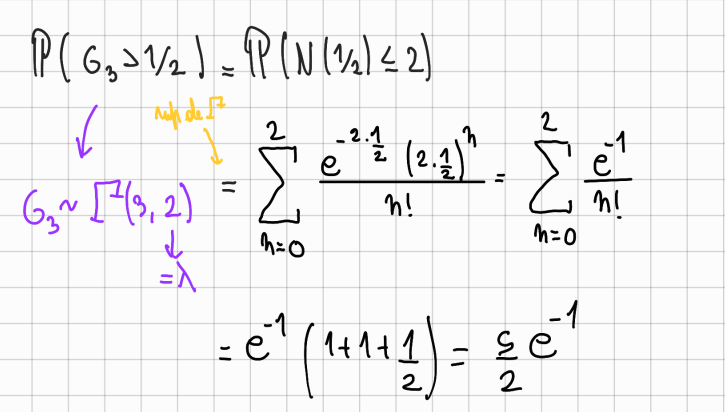 ℙ(G₃>1/2) = ℙ(N(1/2) ≤ 2)
G₃ ~ Γ(3, 2)
= λ
= ∑_{n=0}^{2} e^{-2·1/2} (2·1/2)^n / n! = ∑_{n=0}^{2} e^{-1} / n!
= e^{-1} (1+1+1/2) = 5/2 e^{-1}